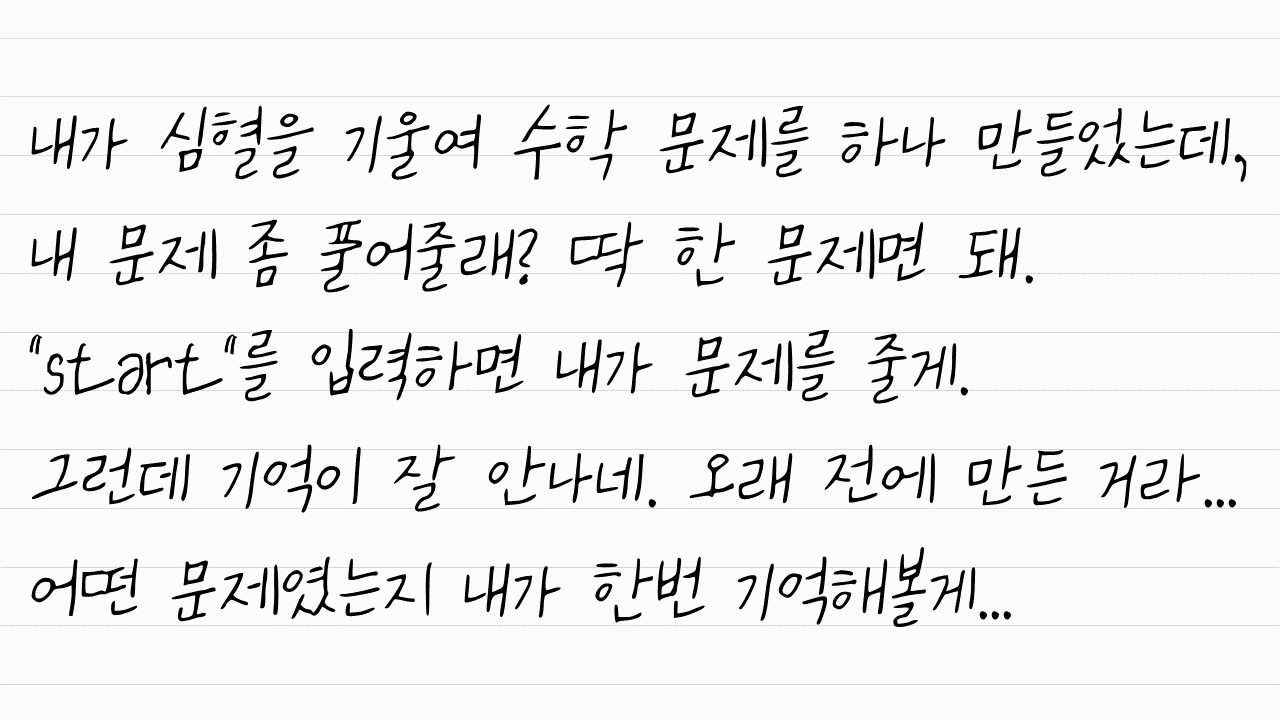 내가 심혈을 기울여 수학 문제를 하나 만들었는데,
내 문제 좀 풀어줄래? 딱 한 문제면 돼.
"start"를 입력하면 내가 문제를 줄게.
그런데 기억이 잘 안나네. 오래 전에 만든 거라...
어떤 문제였는지 내가 한번 기억해볼게...